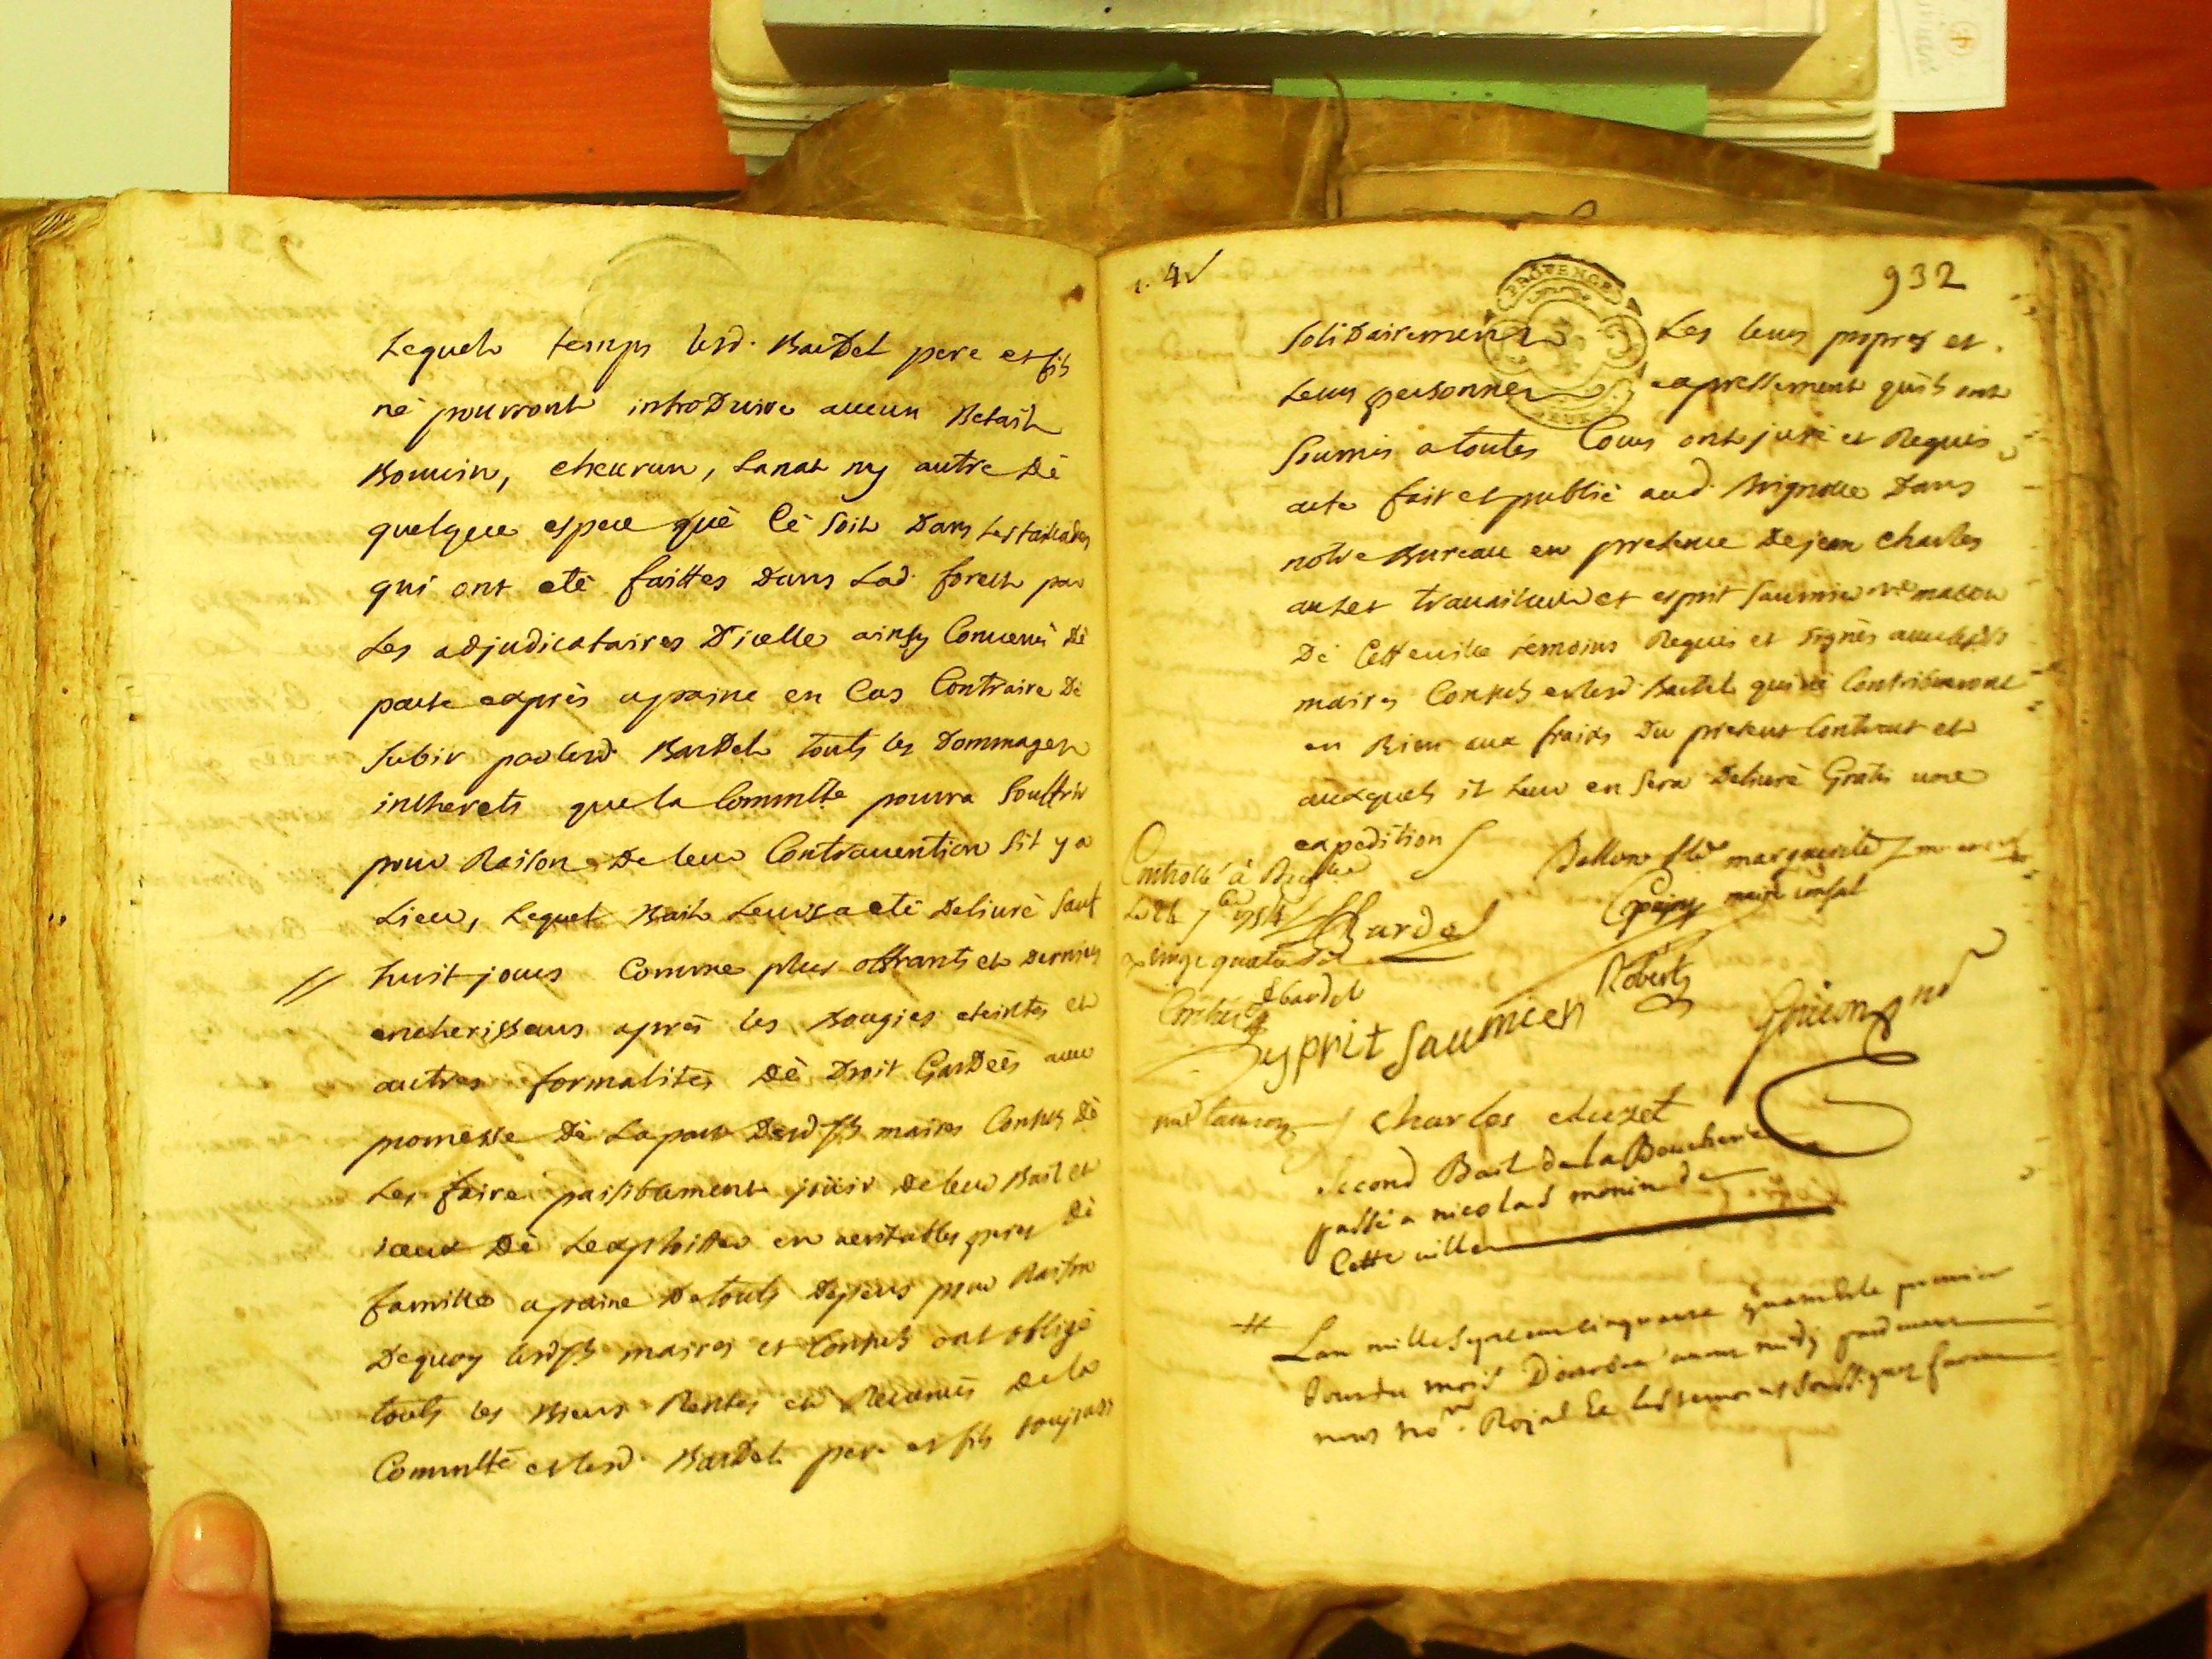 Lequel temps lesd. Bardel pere et fils
ne pourront introduire aucun Betail
Bouvin, cheurun, Lanat ny autre dè
quelque espece què cè soit dans les taillades
qui ont etè faittes dans Lad. forest par
Les adjudicataires d'icelle ainsy Convenû dè
pacte exprès a paine en Cas Contraire dè
subir par lesd. Bardel touts les dommages
intherets que la Commtté pourra souffrir
pour Raison de leur Contrauention sit y a
Lieu, Lequel Bail Leur a etè deliurè sauf
// huit jours Comme plus offrants et derniers
encherisseurs après les Bougies eteintes et
autres formalitès dè droit Gardeès avec
promesse dè La part desd. Srs maires Consuls dè
Les faire paisiblement joüir de leur Bail et
iceux dè Lexploitter en veritables peres dè
famille a paine de touts depens pour Raison
dequoy lesd. Srs maires et Consuls ont obligè
touts les Biens Rentes et Revenus de la
Commtté et lesd. Bardel pere et fils toujours
932
PROVENCE
solidairement Les leurs propres et
Leurs personnes expressement quils ont
soumis a toutes Cours ont jurè et Requis
acte fait et publiè aud. Brignolle dans
notre Bureau en presence de jean charles
auzet travailleur et esprit saumier me macon
dè Cette ville temoins Requis et signès avec lesd. Srs
maires Consuls et lesd. Bardel qui nè Contribueront
en Rien aux fraix du present Contract et
auxquels il Leur en sera deliurè Gratis une
expedition
Bellon marguerite
maire consul
Controllé à
Bardel
Bardel
Roberty
Esprit Saumier
charles auzet
Second Bail de la Boucherie
passé a nicolas monin de
Cette ville
# Lan mille sept cens cinquante quatre & le premier
Jour du mois Doctobre avant midy pardevant
nous no.re Royal & les temoins soussignez furent